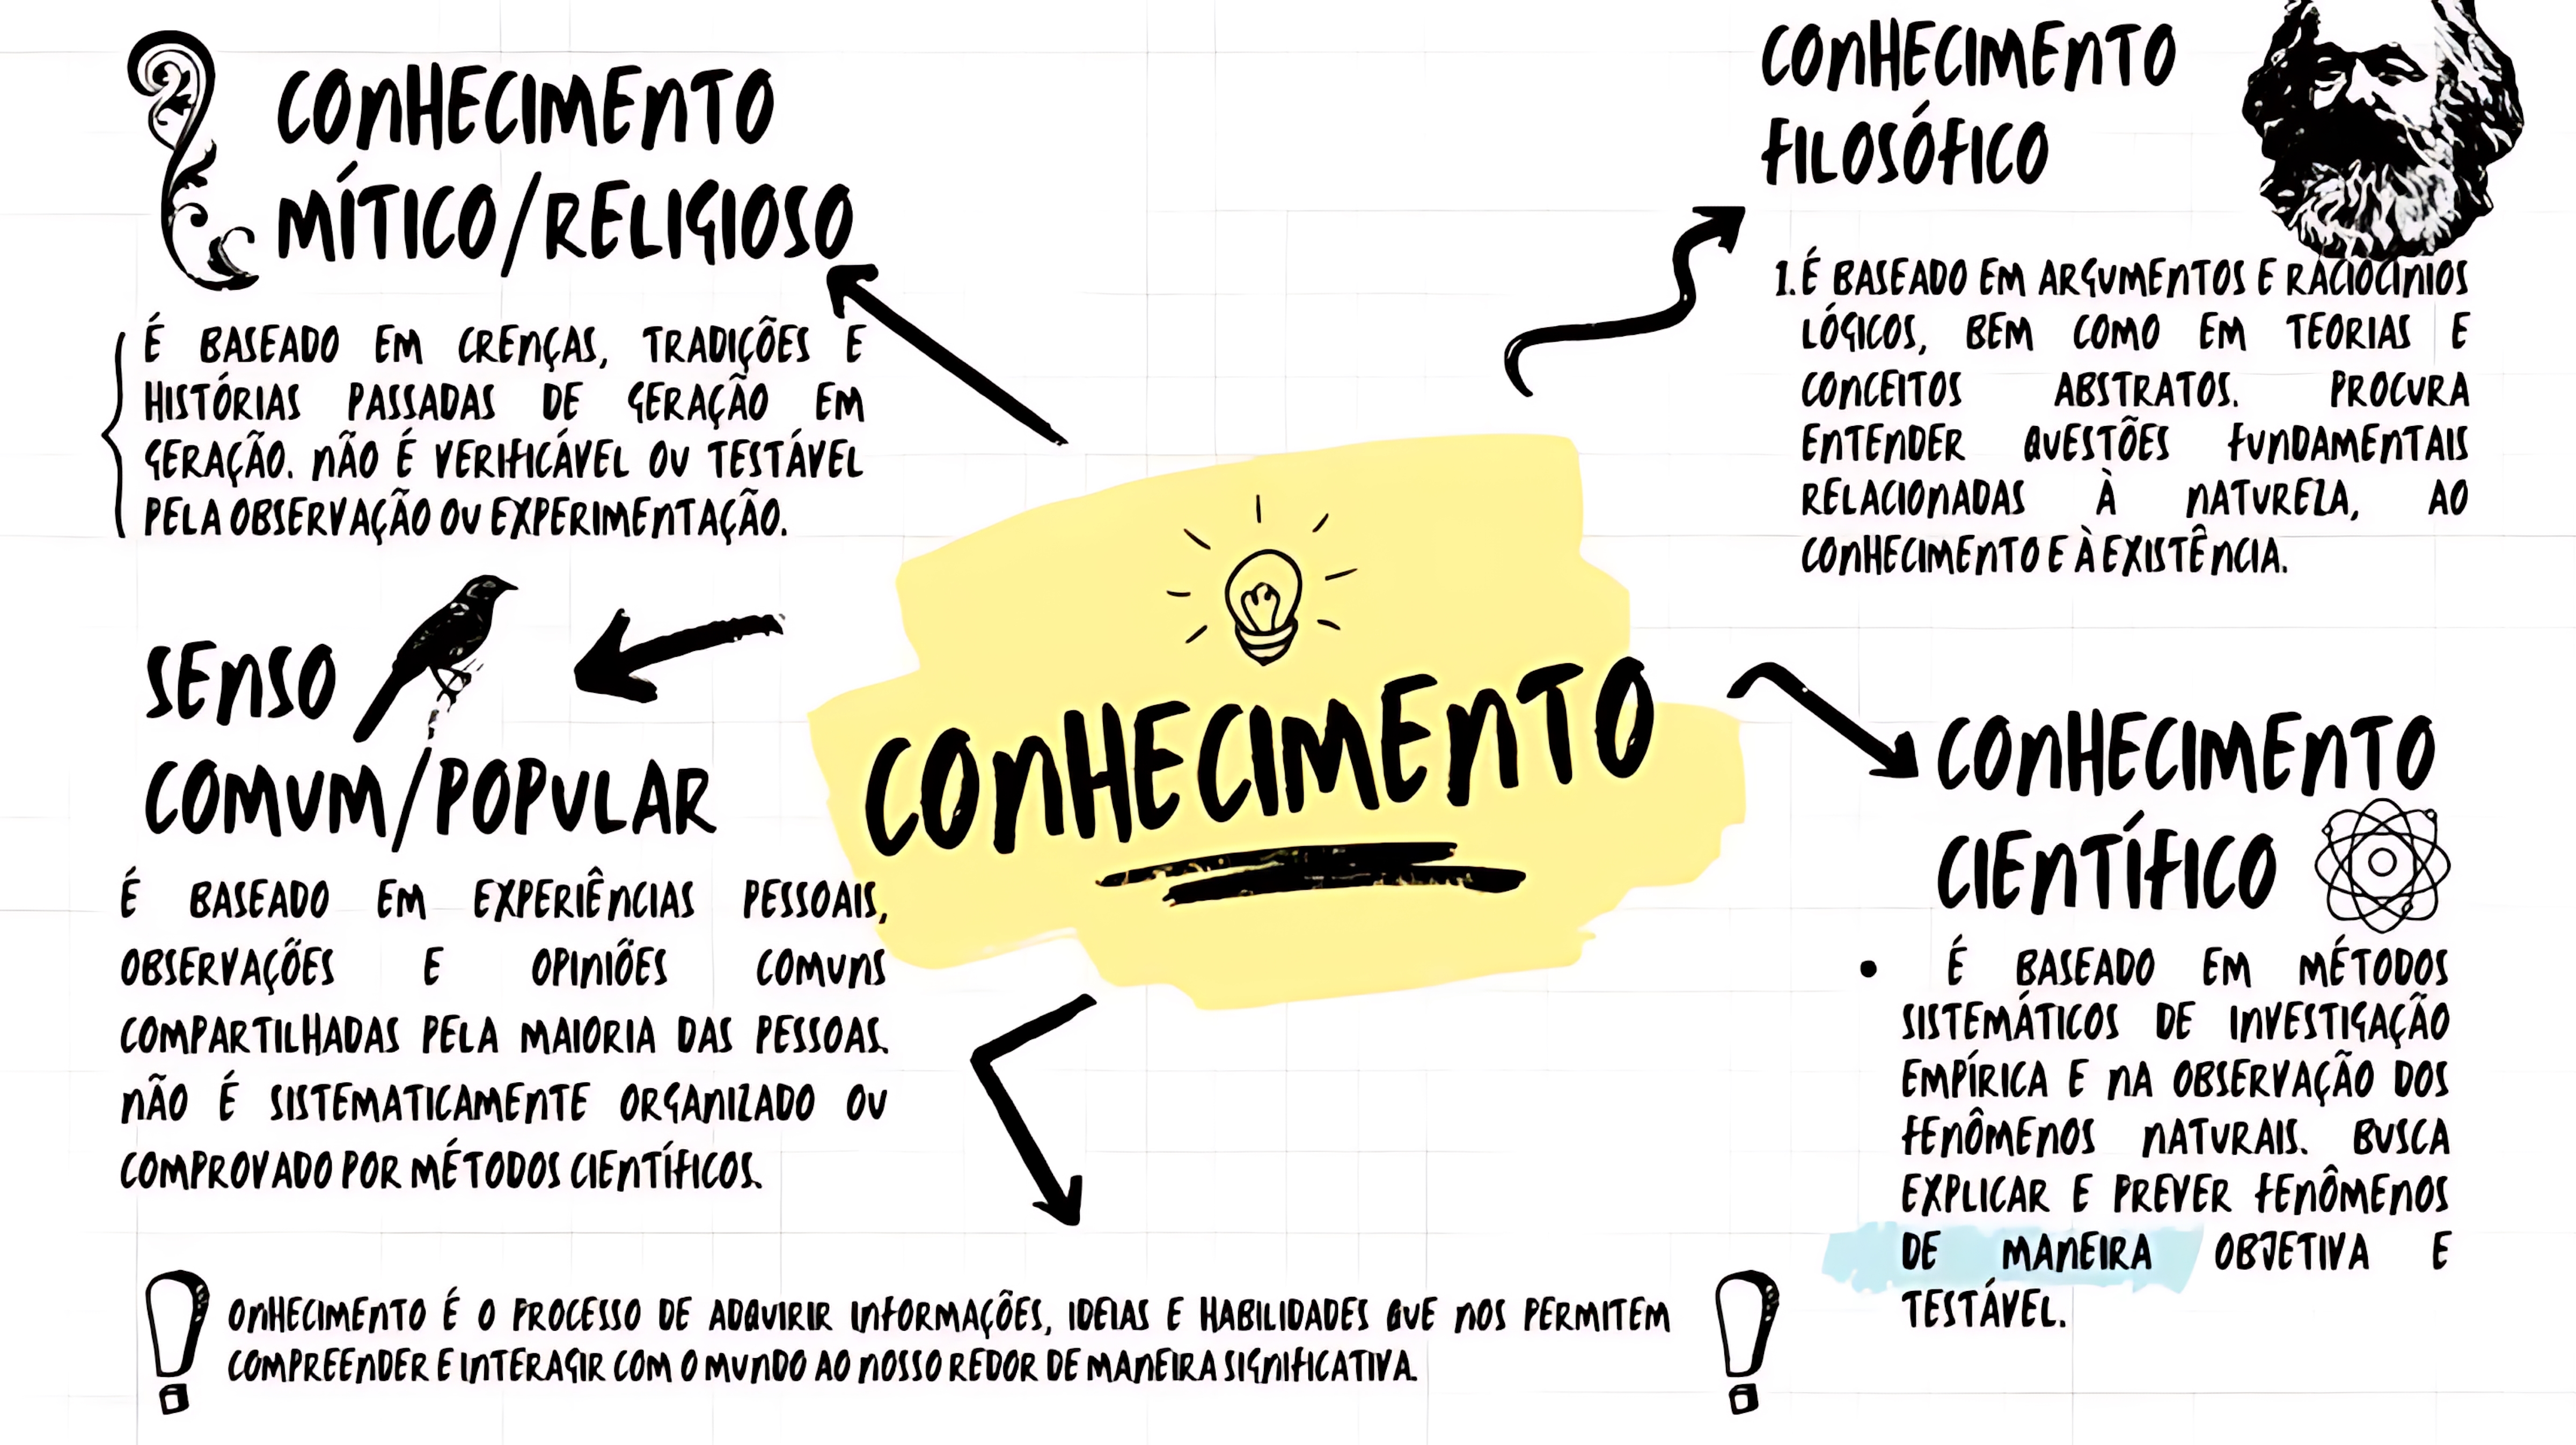 CONHECIMENTO
MÍTICO/RELIGIOSO
É BASEADO EM CRENÇAS, TRADIÇÕES E
HISTÓRIAS PASSADAS DE GERAÇÃO EM
GERAÇÃO. NÃO É VERIFICÁVEL OU TESTÁVEL
PELA OBSERVAÇÃO OU EXPERIMENTAÇÃO.
SENSO
COMUM/POPULAR
É BASEADO EM EXPERIÊNCIAS PESSOAIS,
OBSERVAÇÕES E OPINIÕES COMUNS
COMPARTILHADAS PELA MAIORIA DAS PESSOAS.
NÃO É SISTEMATICAMENTE ORGANIZADO OU
COMPROVADO POR MÉTODOS CIENTÍFICOS.
CONHECIMENTO
CONHECIMENTO
FILOSÓFICO
1. É BASEADO EM ARGUMENTOS E RACIOCÍNIOS
LÓGICOS, BEM COMO EM TEORIAS E
CONCEITOS ABSTRATOS. PROCURA
ENTENDER QUESTÕES FUNDAMENTAIS
RELACIONADAS À NATUREZA, AO
CONHECIMENTO E À EXISTÊNCIA.
CONHECIMENTO
CIENTÍFICO
• É BASEADO EM MÉTODOS
SISTEMÁTICOS DE INVESTIGAÇÃO
EMPÍRICA E NA OBSERVAÇÃO DOS
FENÔMENOS NATURAIS. BUSCA
EXPLICAR E PREVER FENÔMENOS
DE MANEIRA OBJETIVA E
TESTÁVEL.
ONHECIMENTO É O PROCESSO DE ADQUIRIR INFORMAÇÕES, IDEIAS E HABILIDADES QUE NOS PERMITEM
COMPREENDER E INTERAGIR COM O MUNDO AO NOSSO REDOR DE MANEIRA SIGNIFICATIVA.